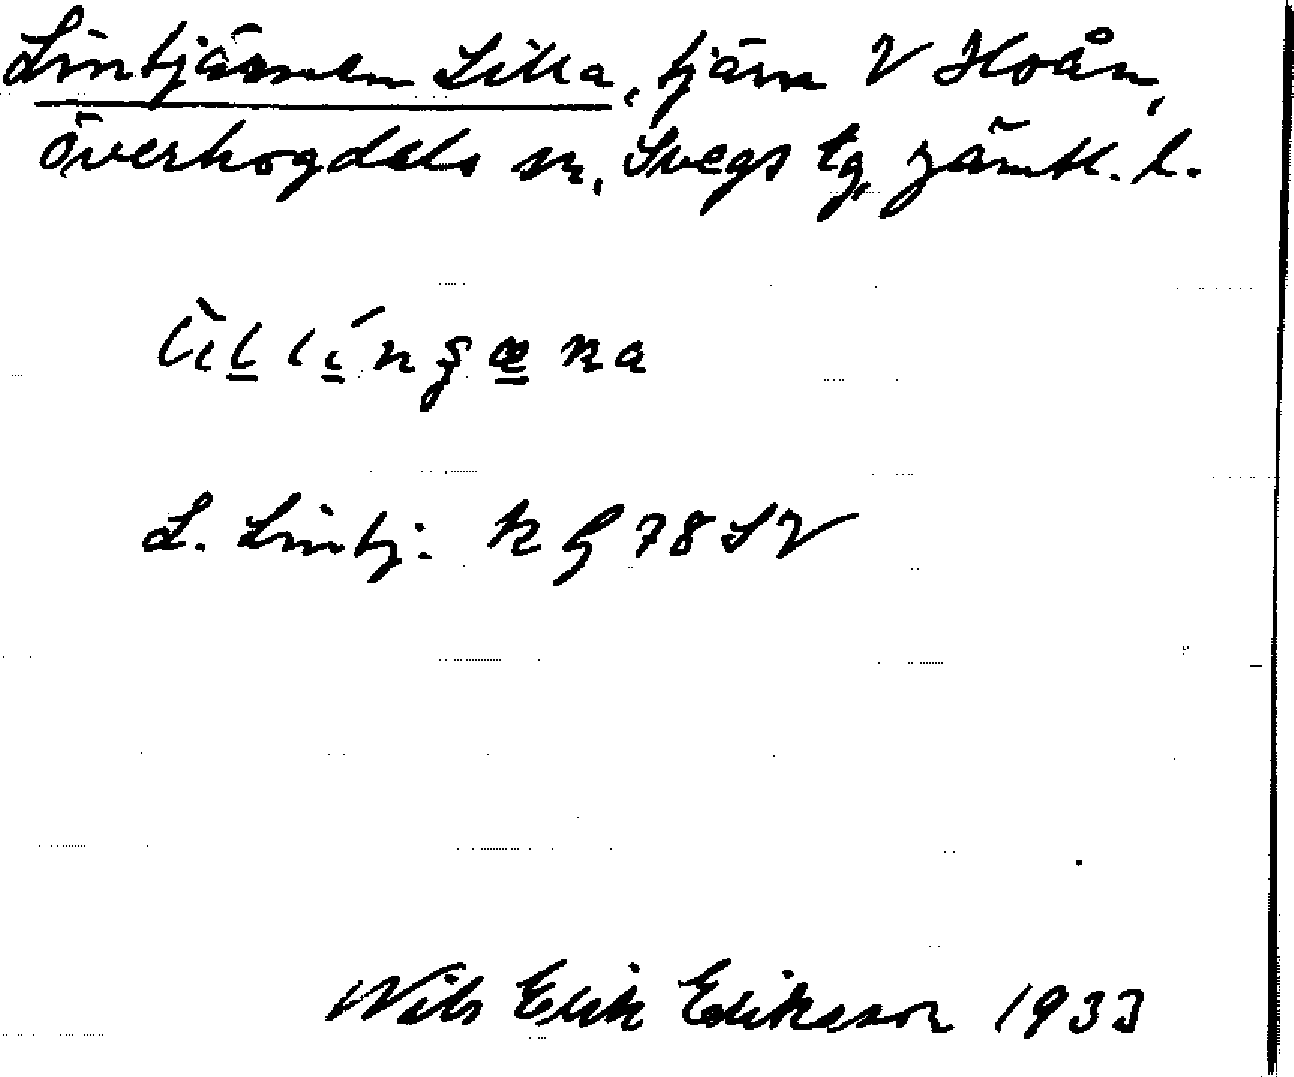 Lintjärnen Lilla, tjärn V Hoån,
Överhogdals sn, Svegs tg, Jämtl. l.
L. Lintj. kg 78 SV
Nils Erik Eriksson 1933